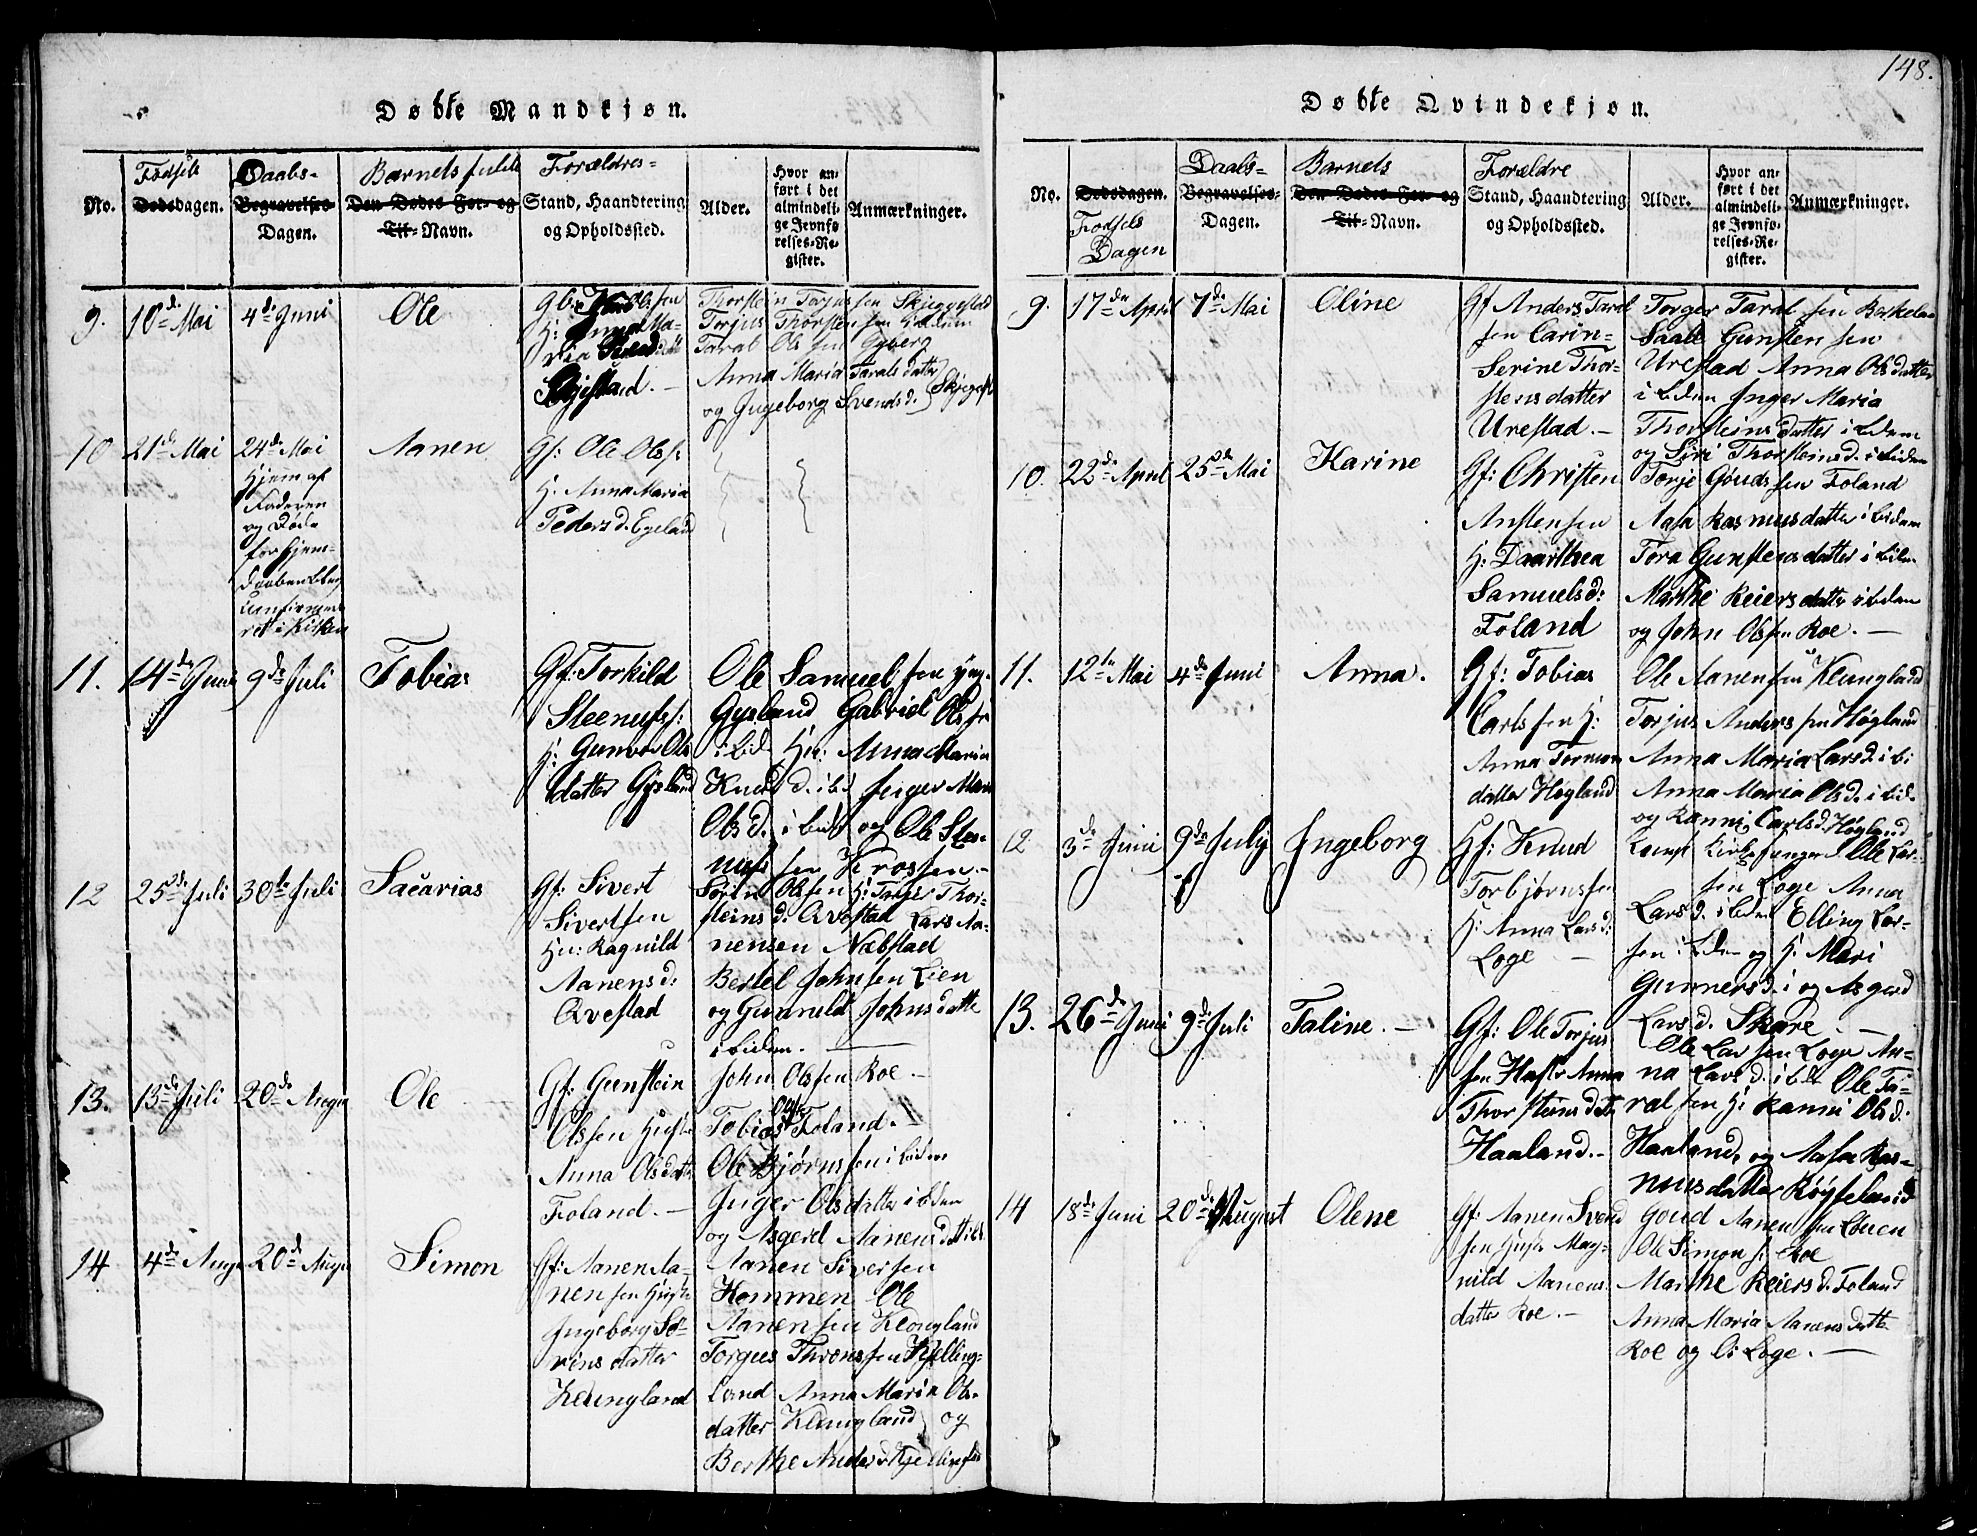 148.
Døbte Mandkjøn.
No.
Fødsels
Dødsdagen.
Daabs-
Begravelses-
Dagen.
Barnets fulde
Den Dødes For- og
Til-Navn.
Forældres-
Stand, Haandtering
og Opholdssted.
Alder.
Hvor an-
ført i det
almindeli-
ge Jevnfø-
relses-Re-
gister.
Anmærkninger.
9.
10de Mai
4de Juni
Ole
Skjegestad
Thorstein Torjussen Skjeggestad
Torjus Thorstensen ibidem
Taral Olsen Gyberg
Anna Maria Tarals datter
og Ingeborg Svendsd.
10
21de Mai
24de Mai
Hjem af
Faderen
og Døde
før Hjem-
daaben blev
ret i Kirken
Aanen
Gf. Ole Olss:
H. Anna Maria
Peders d. Egeland
11.
14de Juni
9de Juli
Tobias
Gf: Torkild
Steenufss:
H: Gunvor Ols
datter Gysland
Ole Samuelsen yng.
Gysland Gabriel Olssen
ibid. Hu: Anna Maria
Knud d. ibd Inger Marie
Olsd. ibid og Ole Stee-
nufsen Krossen.-
12
25de Juli
30de Juli
Sacarias
Gf: Sivert
Sivertsen
Hu: Ragnild
Aanens d:
Qvestad
Søren Olsen H: Tarjer Thor-
steins d. Qvestad Lars Aa-
nensen Næbstad
Bertel Johnsen Lien
og Gunneld Johns datte
ibiden.
13.
13de Juli
20de Augu
Ole
Gf: Gunstein
Olssen Hust
Anna Olsdatter
Foland.-
John Olssen Roe.-
Tobias Olss: Foland.-
Ole Bjørnssen ibidem
Inger Olsdatter ibidem
og Asgerd Aanensdatt ibd.
14
4de Augu
20de Augu
Simon
Gf: Aanen Aa-
nensen Hust
Ingeborg Sø-
rins datter
Klungland
Aanen Siversen
Kommen Ole
Aanensen Klongland
Torgus Thronssen Kjelling-
land Anna Maria Ols-
datter Klungland og
Berthe
Døbte Qvindekjøn.
No.
Dødsdagen.
Fødsels
Dagen
Daabs-
Begravelses-
Dagen.
Barnets
Den Dødes For- og
Til-Navn.
Forældre
Stand, Haandtering
og Opholdssted.
Alder.
Hvor an-
ført i det
almindeli-
ge Jevnfø-
relses-Re-
gister.
Anmærkninger.
9.
17de April
7de Mai
Oline
Gf Anders Taral
sen Carin-
Serine Thor-
stens datter
Urestad.-
Torger Taralsen Birkeland
Saale Gunstensen
Urestad Anna Olsdatter
ibidem Inger Maria
Thorsteins datter ibidem
og Siri Thorsteinsd. ibidem
10.
22de April
25de Mai
Karine
Gf: Christen
Anstensen
H: Daarthea
Samuels d:
Foland
Torje Gouds sen Foland
Aasa Rasmusdatter ibidem
Tora Gunstensdatter ibidem
Marthe Reiersdatter ibidem
og John Olssen Roe.
11.
12te Mai
4de Juni
Anna.
Gf: Tobias
Carlssen H:
Anna Tormun
datter Høgland
Ole Aanensen Klungland
Torjus Anderssen Høgland
Anna Maria Larsd. ibi
Anna Maria Olsd. ibid.
og Ranni Carlsd. Høgland
12
3de Juni
9de July
Ingeborg
Gf: Knud
Torbjørnssen
H: Anna Larsd:
Loge
Kirkesanger Ole Lar-
sen Loge Anna
Larsd. ibidem Elling Lar-
sen ibidem og H: Mari
Gunners d. i og Asgerd
Larsd. Skare.
13.
26de Juni
9de Juli
Taline.
Gf: Ole Torjus
sen Anna
Thorsteins datt
Haaland.-
Ole Larsen Loge An-
na Larsd. ibd Ole Ta-
ralsen H: Ranni Olsd.
Haaland, og Aasa Ras-
musdatter Røyseland
14
18de Juni
20de August
Olene
Gf: Aanen Svend
sen Hust Mag-
nild Aanens
datter Roe.-
Goud Aanensen Loien
Ole Simons: Roe
Marthe Reiersd. Foland
Anna Maria Aanensdatte
Roe og Loge.